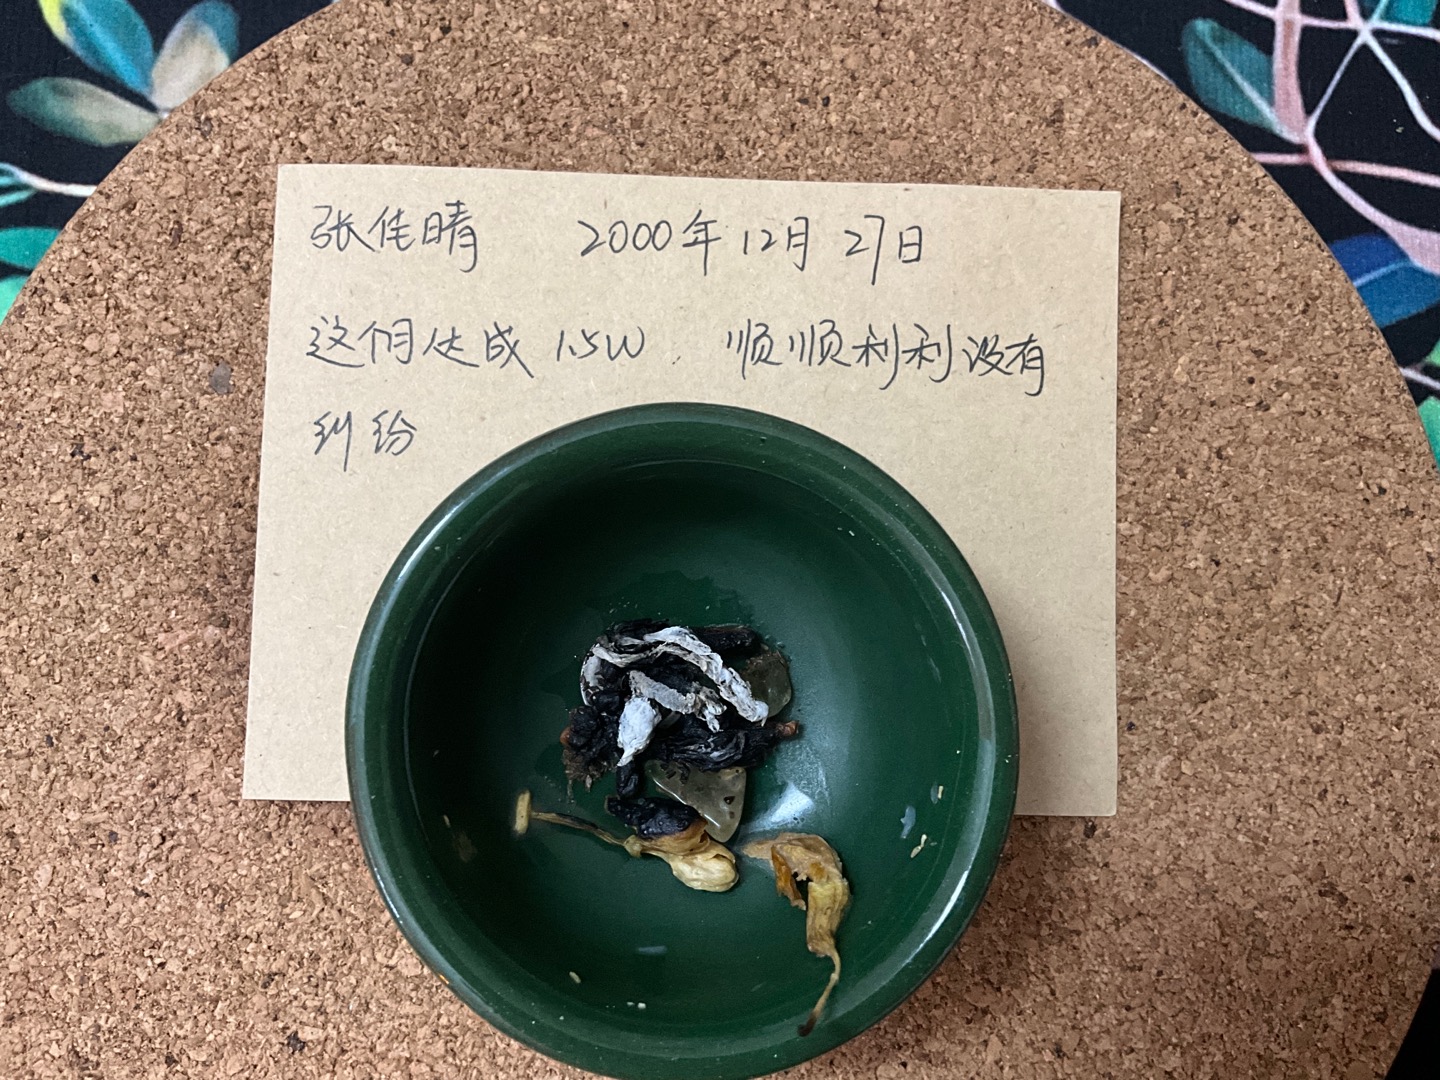 张佳晴 2000年12月27日
这个月达成 1.5W 顺顺利利没有
纠纷